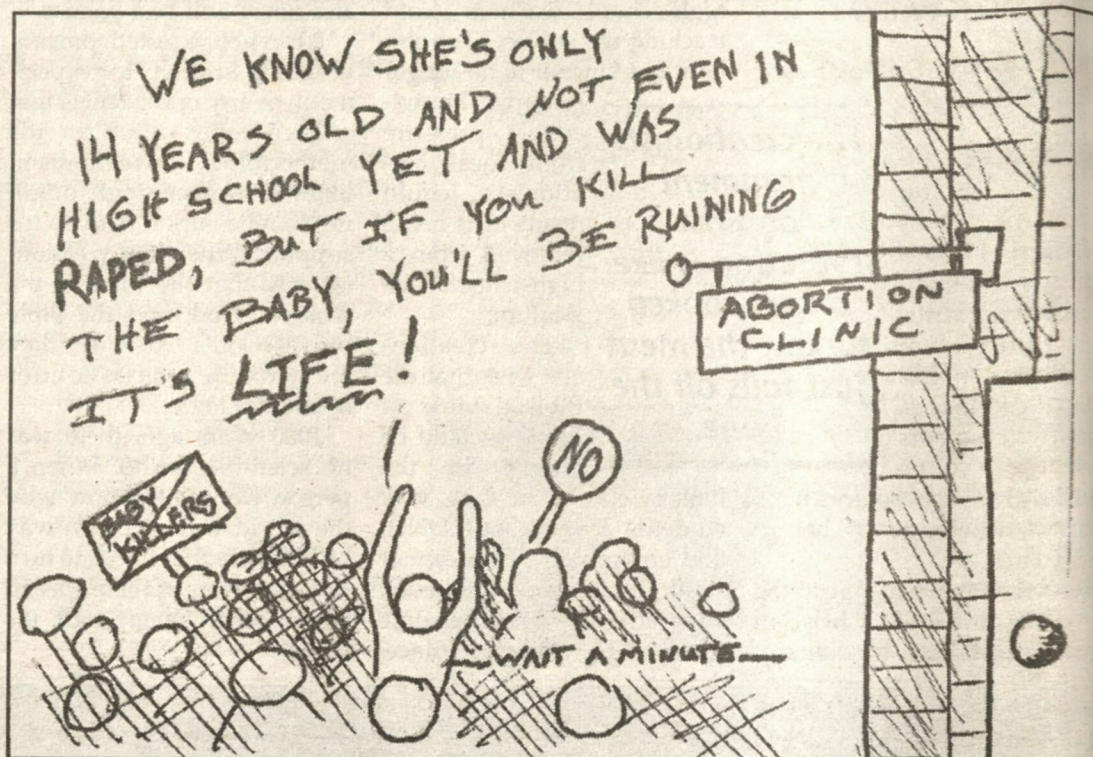 WE KNOW SHE'S ONLY
14 YEARS OLD AND NOT EVEN IN
HIGH SCHOOL YET AND WAS
RAPED, BUT IF YOU KILL
THE BABY, YOU'LL BE RUINING
IT'S LIFE!
ABORTION
CLINIC
NO
BABY
KILLERS
—WAIT A MINUTE—